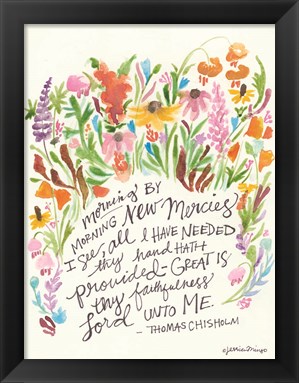 morning BY
MORNING NEW Mercies
I See, all I HAVE NEEDED
thy hand HATH
provided - GREAT is
thy faithfulness
Lord UNTO ME.
- THOMAS CHISHOLM
©jessica mingo